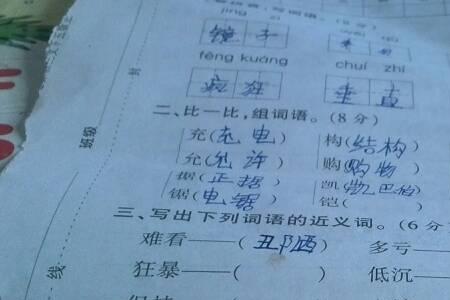 镜子
fēng kuáng chuí zhí
疯狂 垂直
二、比一比,组词语。(8分)
充(充电) 构(结构)
允(允许) 购(购物)
据(正据) 凯(凯巴伯)
锯(电锯) 铠( )
三、写出下列词语的近义词。(6分
难看——(丑陋) 多亏——(
狂暴——( ) 低沉——(
班级
封
线